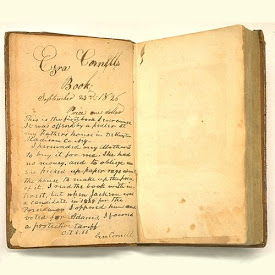 Ezra Cornell's
Book
September 24th 1826
Price one dollar
This is the first book I ever owned
It was offered by a pedler at
my Fathers house in DeRuyter
Madison County.
I persuaded my Mother
to buy it for me. She had
no money, and to oblige me
she picked up paper rags about
the house to make up the price
of it. I read the book with in-
trest, but when Jackson was
a candidate in 1828 for the
Presidency I opposed him and
voted for Adams. I favored
a protective tariff
Ezra Cornell